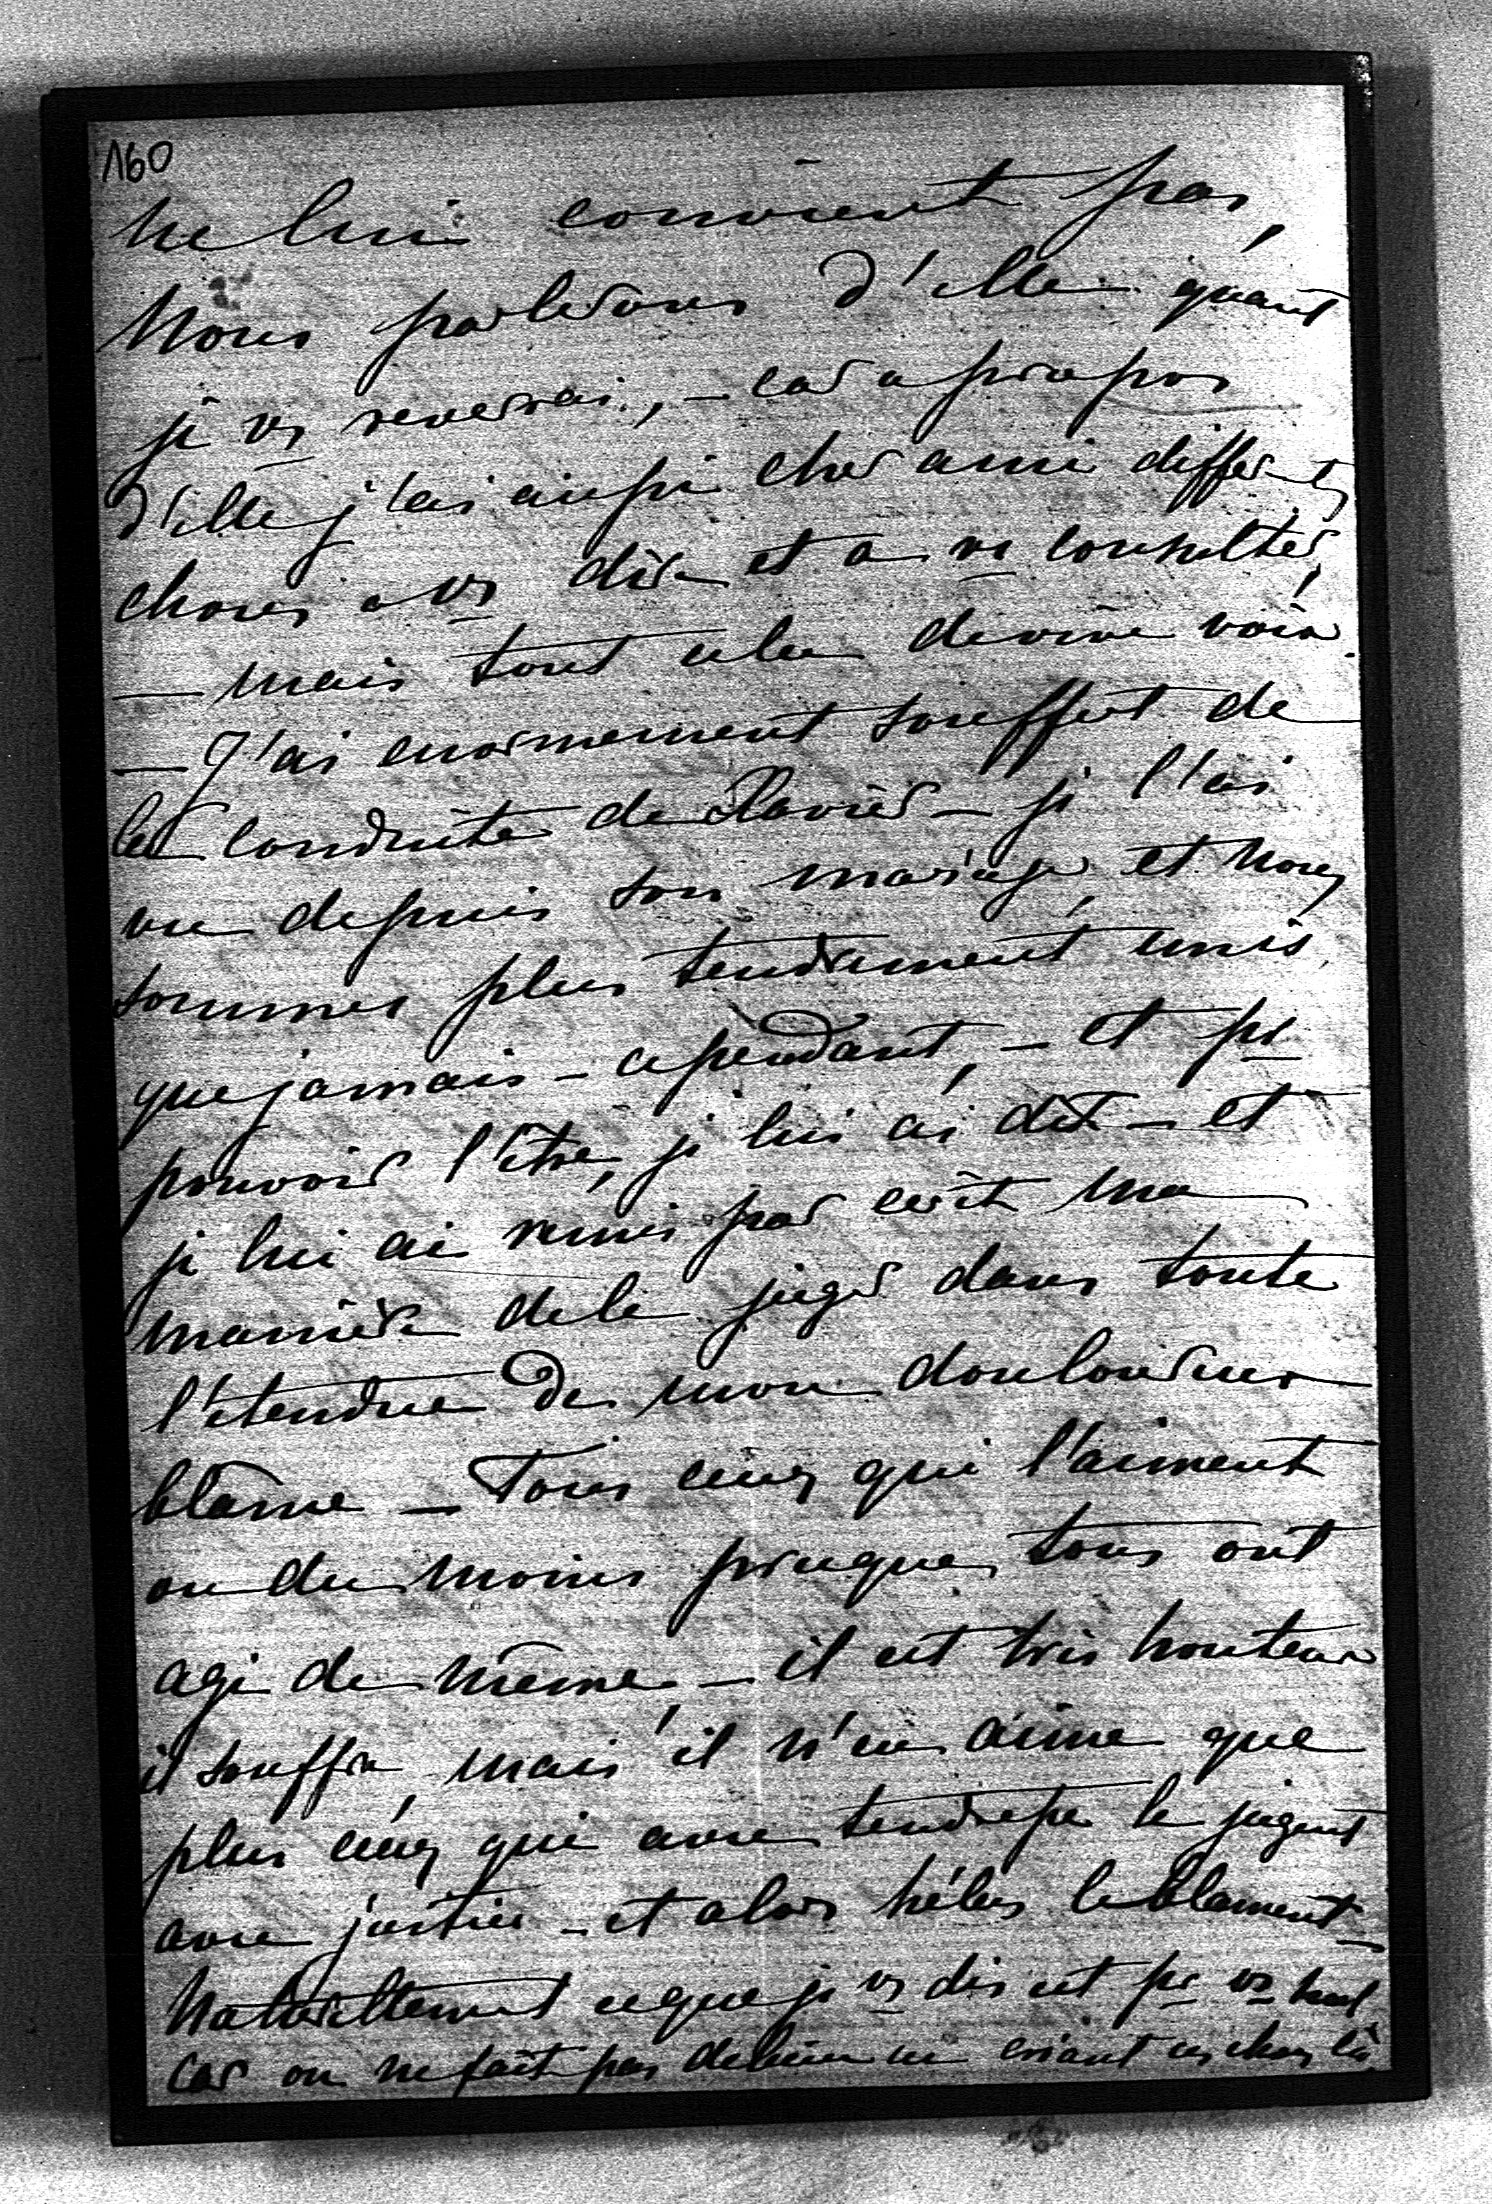 160
ne lui convient pas,
Nous parlerons d'elle quant
je vs reverrai, – car a propos
d'elle j'ai aussi cher ami differ-ts
choses a vs dire et a vs consulter
— mais tout cela de vive voix.
— J'ai enormement souffert de
la conduite de Xavier – je l'ai
vu depuis son mariage, et nous
sommes plus tendrement unis
que jamais – cependant, – et pr
pouvoir l'être, je lui ai dit – et
je lui ai remis par ecrit ma
manière de le juger dans toute
l'etendue de mon douloureux
blâme — Tous ceux qui l'aiment
ou du moins presque tous ont
agi de même, – il est très honteux
il souffre, mais il n'en aime que
plus ceux qui avec tendresse le jugent
avec justice – et alors hélas le blament –
Naturellement ce que je vs dis est pr vs seul
car on ne fait pas de bien en criant ces choses là